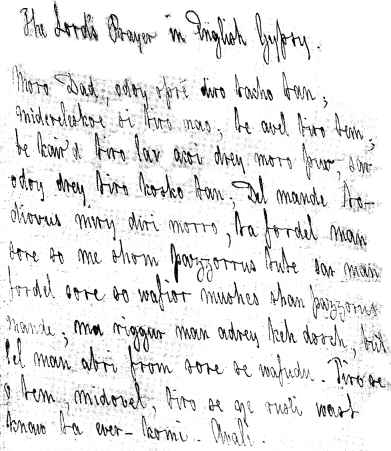 The Lord's Prayer in English Gypsy.
Moro Dad, odoy oprè tiro tacho tan;
miderelskoe si tiro nao; te avel tiro tem;
te kair'd tiro lav acoi drey moro puv, sar
odoy drey tiro kosko tan; Del mande to-
divvus miry diri morro, ta fordel man
sore so me shom pazzorrus tute sar man
fordel sore so wafior mushes shan pazzorrus
mande; ma riggur man adrey keh dosch, but
lel man abri from sore se wafudu. Tiro se
o tem, midovel, tiro se o rusli wast
knaw ta ever-komi. Avali.